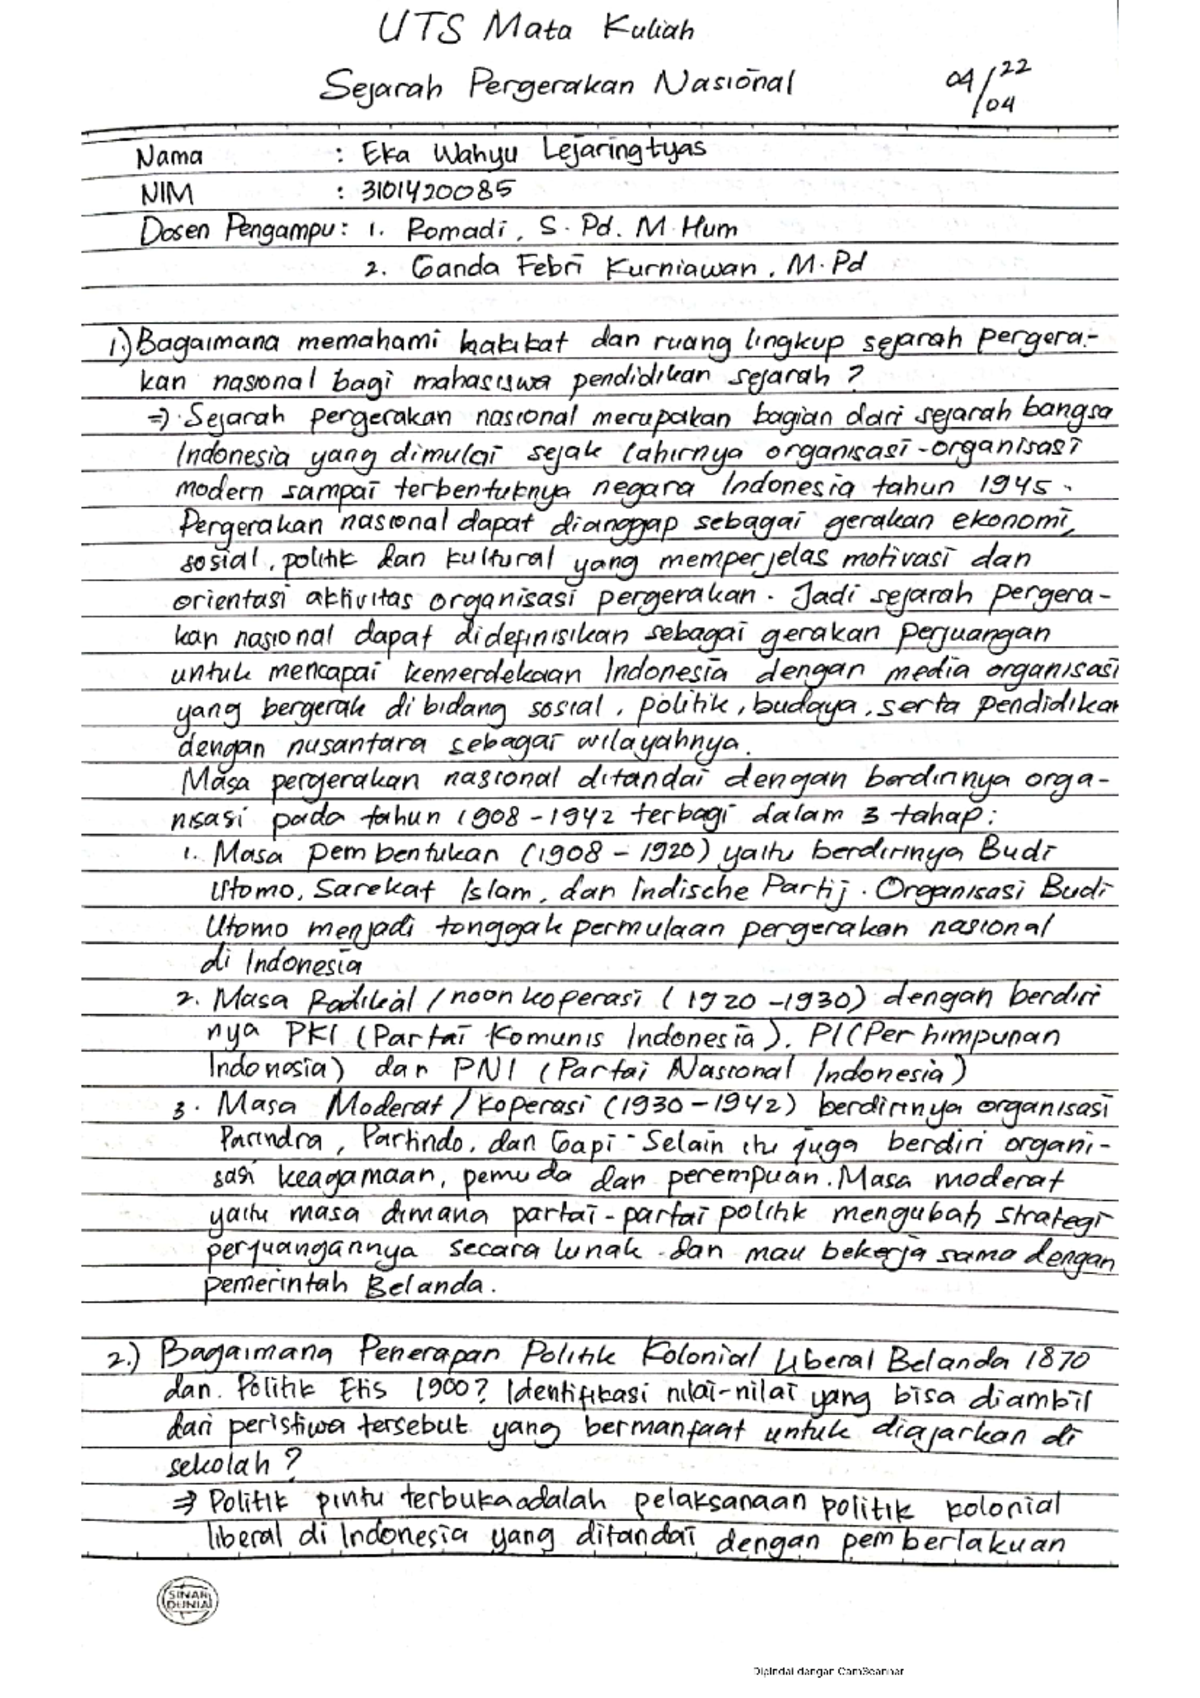 UTS Mata Kuliah
Sejarah Pergerakan Nasional
04/22
/04
Nama : Eka Wahyu Lejaringtyas
NIM : 3101420085
Dosen Pengampu: 1. Romadi, S.Pd. M.Hum
2. Ganda Febri Kurniawan, M.Pd
1.) Bagaimana memahami hakikat dan ruang lingkup sejarah pergera-
kan nasional bagi mahasiswa pendidikan sejarah ?
=> Sejarah pergerakan nasional merupakan bagian dari sejarah bangsa
Indonesia yang dimulai sejak lahirnya organisasi-organisasi
modern sampai terbentuknya negara Indonesia tahun 1945.
Pergerakan nasional dapat dianggap sebagai gerakan ekonomi,
sosial, politik dan kultural yang memperjelas motivasi dan
orientasi aktivitas organisasi pergerakan. Jadi sejarah pergera-
kan nasional dapat didefinisikan sebagai gerakan perjuangan
untuk mencapai kemerdekaan Indonesia dengan media organisasi
yang bergerak di bidang sosial, politik, budaya, serta pendidikan
dengan nusantara sebagai wilayahnya.
Masa pergerakan nasional ditandai dengan berdirinya orga-
nisasi pada tahun 1908 - 1942 terbagi dalam 3 tahap:
1. Masa pembentukan (1908 - 1920) yaitu berdirinya Budi
Utomo, Sarekat Islam, dan Indische Partij. Organisasi Budi
Utomo menjadi tonggak permulaan pergerakan nasional
di Indonesia
2. Masa Radikal /noon koperasi (1920 -1930) dengan berdiri
nya PKI (Partai Komunis Indonesia). PI (Perhimpunan
Indonesia) dan PNI (Partai Nasional Indonesia)
3. Masa Moderat /koperasi (1930-1942) berdirinya organisasi
Parindra, Partindo, dan Gapi. Selain itu juga berdiri organi-
sasi keagamaan, pemuda dan perempuan. Masa moderat
yaitu masa dimana partai-partai politik mengubah strategi
perjuangannya secara lunak dan mau bekerja sama dengan
pemerintah Belanda.
2.) Bagaimana Penerapan Politik Kolonial Liberal Belanda 1870
dan Politik Etis 1900? Identifikasi nilai-nilai yang bisa diambil
dari peristiwa tersebut yang bermanfaat untuk diajarkan di
sekolah ?
=> Politik pintu terbuka adalah pelaksanaan politik kolonial
liberal di Indonesia yang ditandai dengan pemberlakuan
SINAR
DUNIA
Dipindai dengan CamScanner